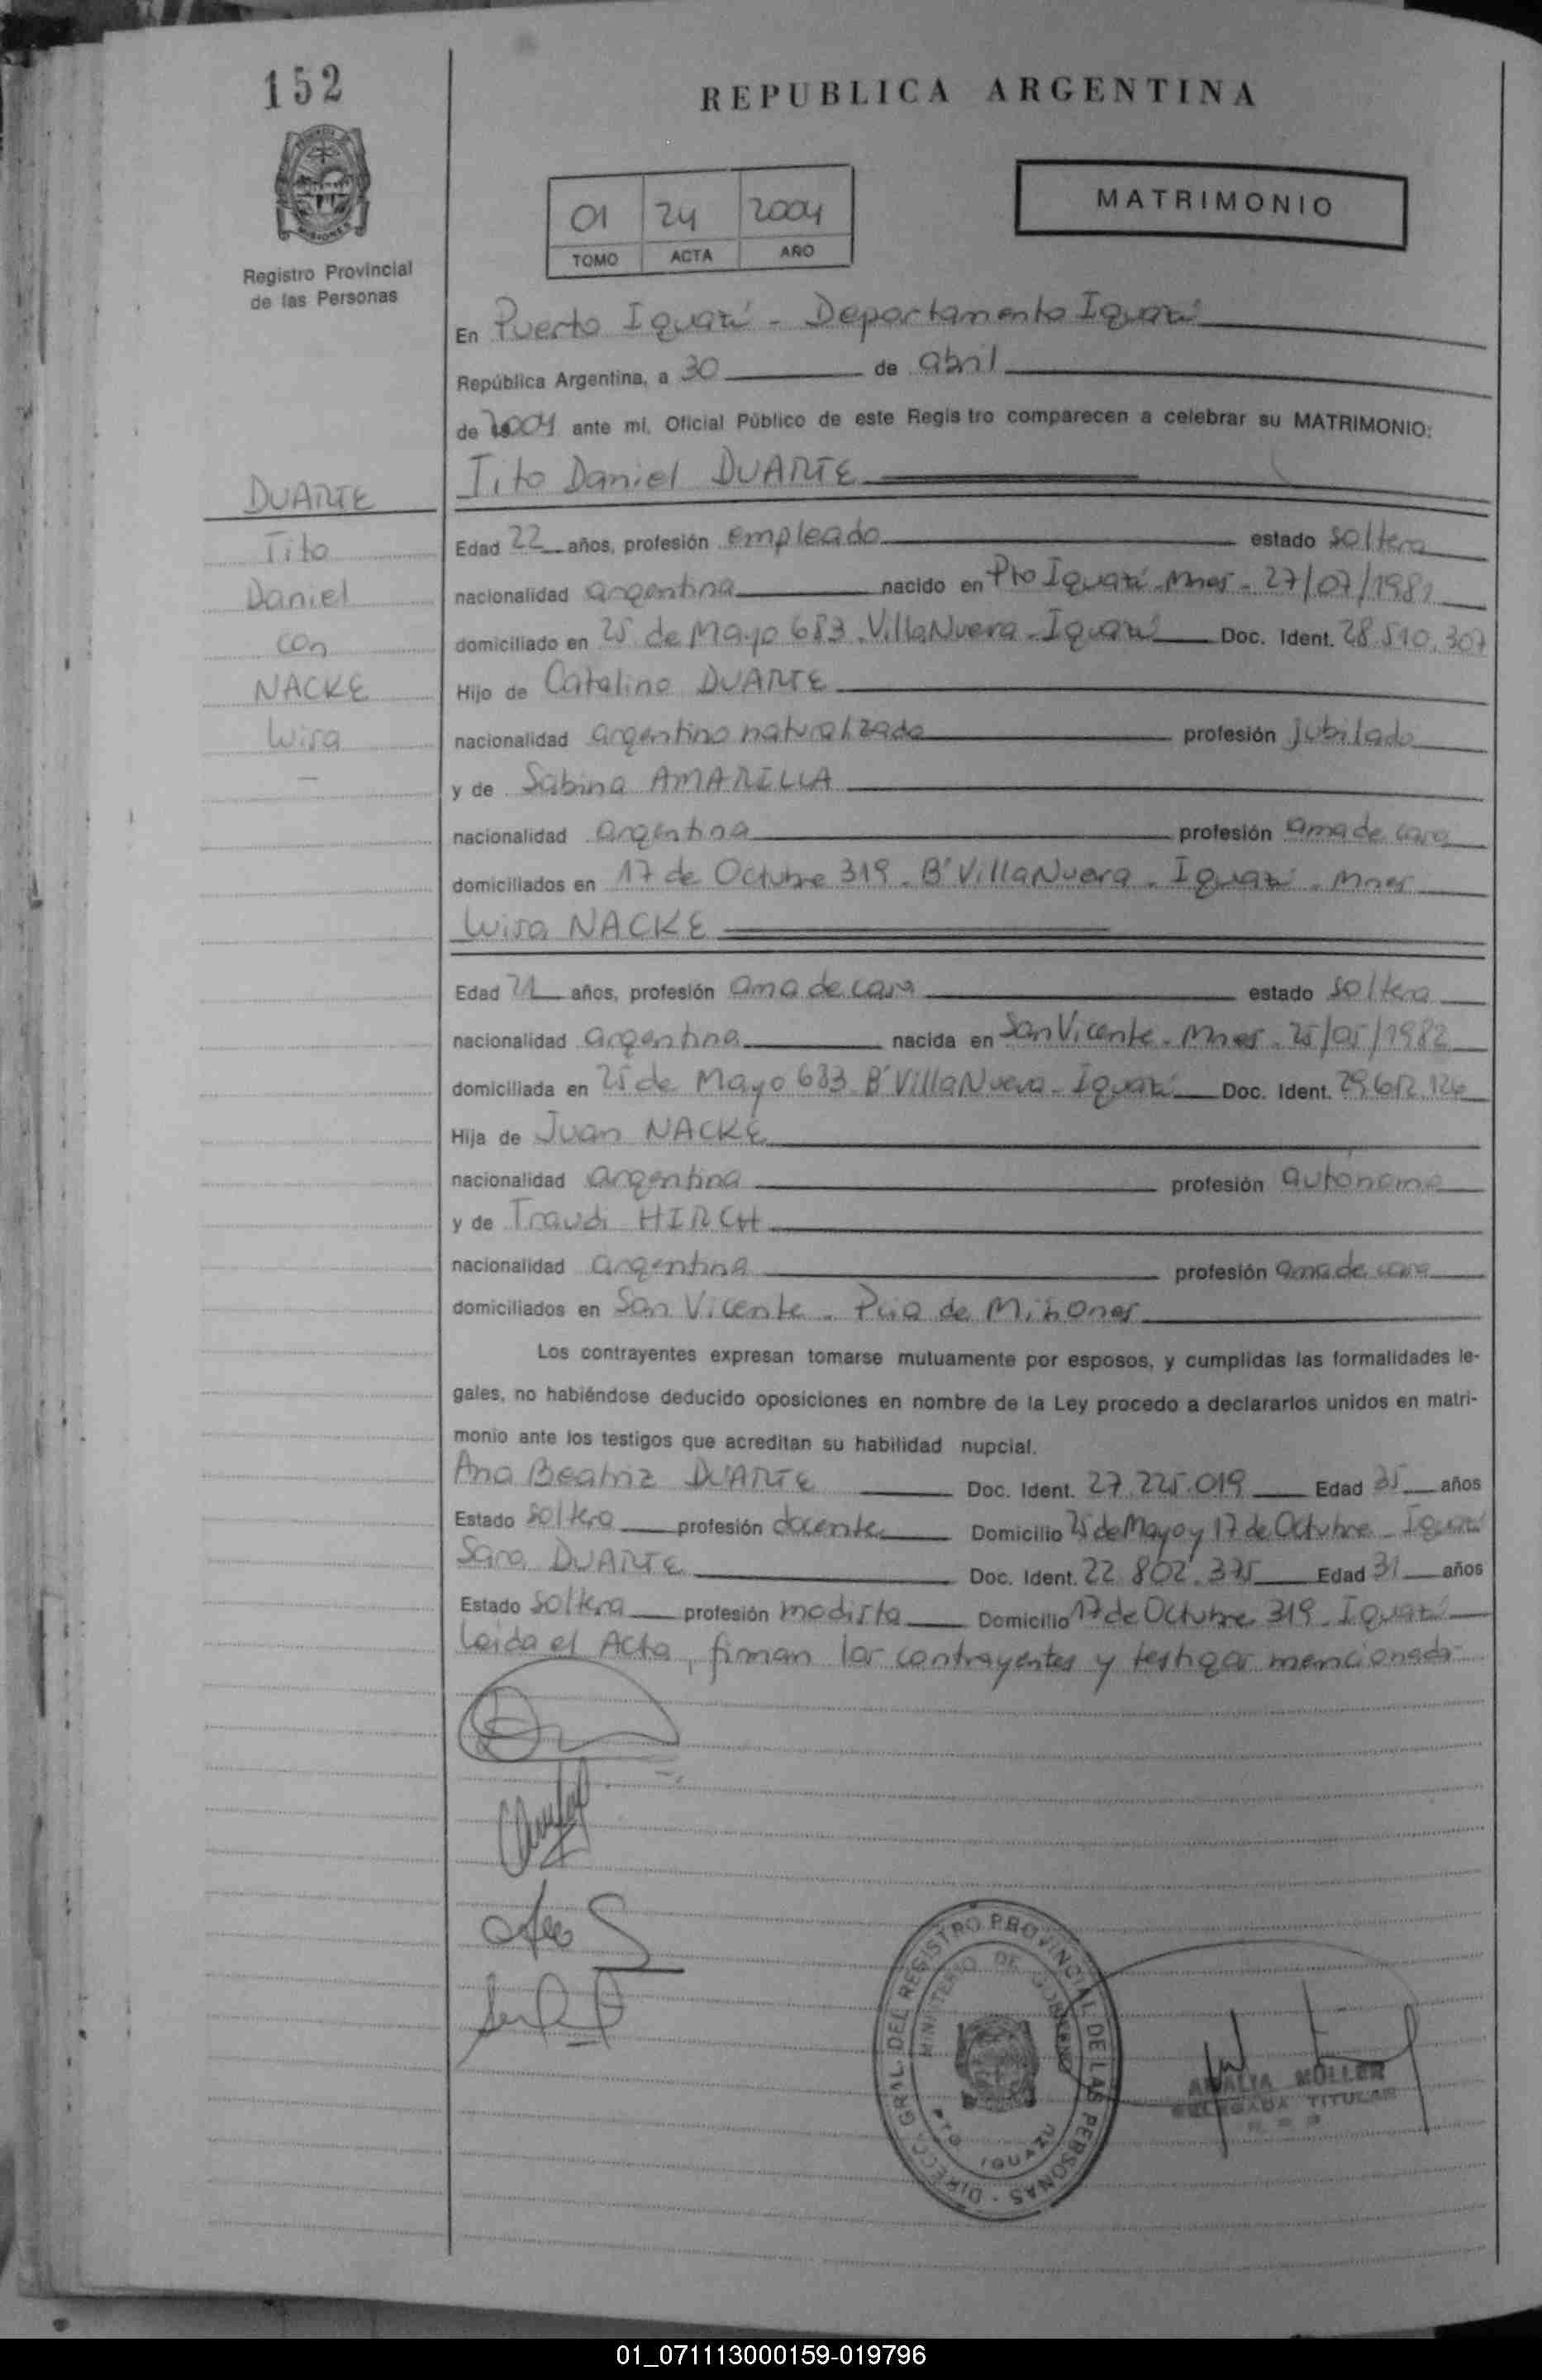 152
REPUBLICA ARGENTINA
01 24 2004
TOMO ACTA AÑO
MATRIMONIO
Registro Provincial
de las Personas
En Puerto Iguazú - Departamento Iguazú
República Argentina, a 30 de abril
de 2004 ante mí, Oficial Público de este Regis tro comparecen a celebrar su MATRIMONIO:
DUARTE
Tito
Daniel
con
NACKE
Luisa
Tito Daniel DUARTE
Edad 22 años, profesión empleado estado soltero
nacionalidad argentina nacido en Pto Iguazú - Mnes - 27/07/1981
domiciliado en 25 de Mayo 683 - Villa Nueva - Iguazú Doc. Ident. 28.510.307
Hijo de Catalino DUARTE
nacionalidad argentino naturalizado profesión jubilado
y de Sabina AMARILLA
nacionalidad argentina profesión ama de casa
domiciliados en 17 de Octubre 319 - B° Villa Nueva - Iguazú - Mnes
Luisa NACKE
Edad 21 años, profesión ama de casa estado soltera
nacionalidad argentina nacida en San Vicente - Mnes - 25/05/1982
domiciliada en 25 de Mayo 683 - B° Villa Nueva - Iguazú Doc. Ident. 29.612.126
Hija de Juan NACKE
nacionalidad argentina profesión autónomo
y de Traudi HIRCH
nacionalidad argentina profesión ama de casa
domiciliados en San Vicente - Pcia de Misiones
Los contrayentes expresan tomarse mutuamente por esposos, y cumplidas las formalidades le-
gales, no habiéndose deducido oposiciones en nombre de la Ley procedo a declararlos unidos en matri-
monio ante los testigos que acreditan su habilidad nupcial.
Ana Beatriz DUARTE Doc. Ident. 27.225.019 Edad 35 años
Estado soltera profesión docente Domicilio 25 de Mayo y 17 de Octubre - Iguazú
Sara DUARTE Doc. Ident. 22.802.375 Edad 31 años
Estado soltera profesión modista Domicilio 17 de Octubre 319 - Iguazú
Leída el Acta, firman los contrayentes y testigos mencionados
DIRECC. GRAL. DEL REGISTRO PROVINCIAL DE LAS PERSONAS -
MINISTERIO DE GOBIERNO
PTO IGUAZU
AMALIA MÜLLER
DELEGADA TITULAR
01_071113000159-019796